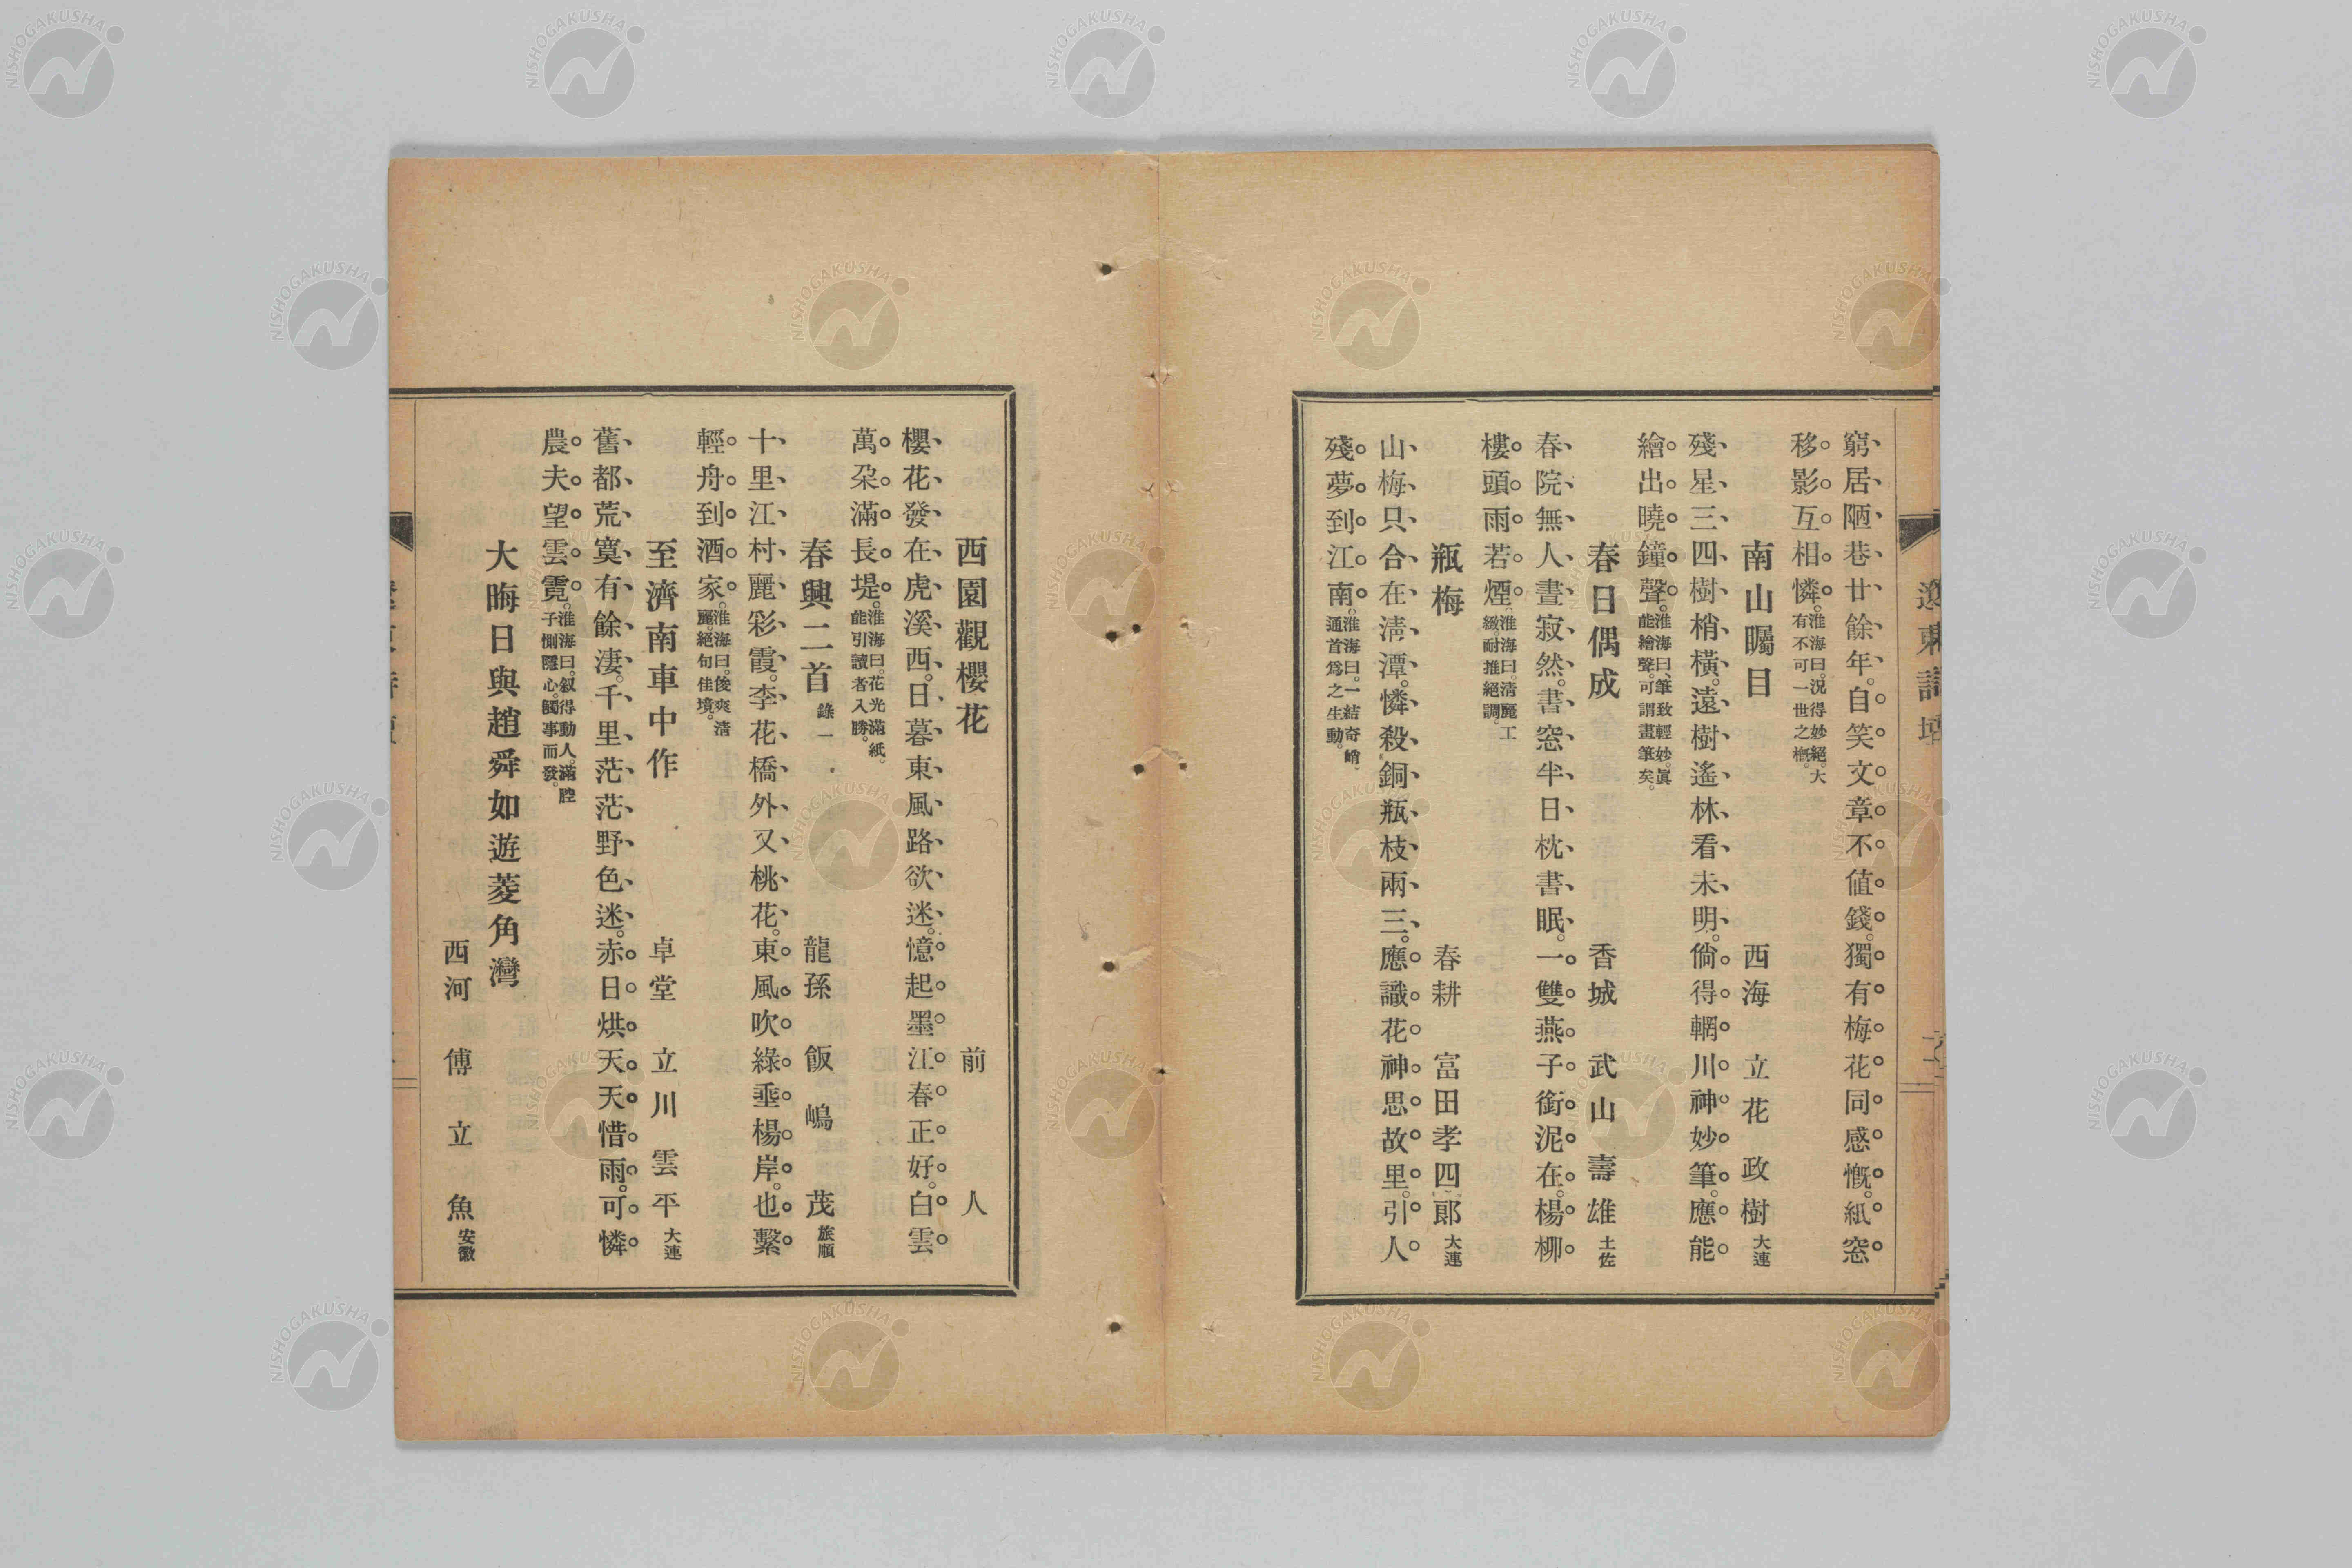 窮居陋巷廿餘年。自笑文章不値錢。獨有梅花同感慨。紙窓
移影互相憐。淮海曰。況得妙絕。大有不可一世之概。
南山矚目 西海 立花政樹 大連
殘星三四樹梢橫。遠樹遙林看未明。倘得輞川神妙筆。應能
繪出曉鐘聲。淮海曰、筆致輕妙。眞能繪聲。可謂畫筆矣。
春日偶成 香城 武山壽雄 土佐
春院無人晝寂然。書窓半日枕書眠。一雙燕子銜泥在。楊柳
樓頭雨若煙。淮海曰。清麗工緻。耐推絕調。
瓶梅 春耕 富田孝四郞 大連
山梅只合在淸潭。憐殺銅瓶枝兩三。應識花神思故里。引人
殘夢到江南。淮海曰。一結奇峭、通首爲之生動。
西園觀櫻花 前人
櫻花發在虎溪西。日暮東風路欲迷。憶起墨江春正好。白雲
萬朶滿長堤。淮海曰。花光滿紙。能引讀者入勝。
春興二首 錄一 龍孫 飯嶋茂 旅順
十里江村麗彩霞。李花橋外又桃花。東風吹綠垂楊岸。也繫
輕舟到酒家。淮海曰。俊爽清麗。絕句佳境。
至濟南車中作 卓堂 立川雲平 大連
舊都荒寞有餘凄。千里茫茫野色迷。赤日烘天天惜雨。可憐
農夫望雲霓。淮海曰。叙得動人。滿腔子惻隱心。觸事而發。
大晦日與趙舜如遊菱角灣
西河 傅立魚 安徽
NISHOGAKUSHA